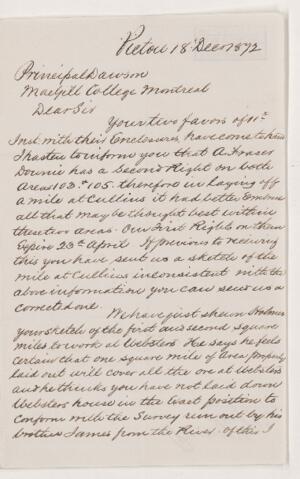 Pictou 18 Dec 1872
Principal Dawson
MacGill College Montreal
Dear Sir
Your two favors of 11th
Inst. with their Enclosures have come to hand
I hasten to inform you that A. Fraser
Downie has a Second Right on both
Areas 102 & 105. therefore in laying off
a mile at Cullins it had better Embrace
all that may be thought best within
these two areas. Our First Rights on them
Expire 28th April If previous to receiving
this you have sent us a sketch of the
mile at Cullins inconsistent with the
above information you can send us a
corrected one.
We have just shewn Holmes
your sketch of the first and second square
miles to work at Websters. He says he feels
certain that one square mile of area properly
laid out will cover all the ore at Websters
and he thinks you have not laid down
Websters house in the exact position to
conform with the Survey run out by his
brother James from the River. of this I